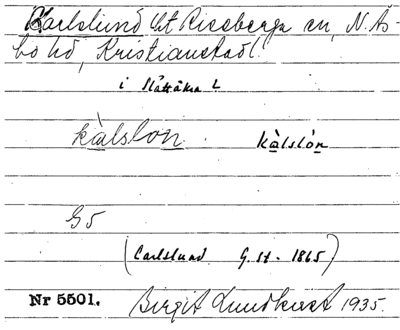 Karlslund Lt Riseberga sn, N. Ås-
bo hd, Kristianstad l.
i Slättåkra L
kàlslon kàlslòn
G 5
(Carlslund G. st. - 1865)
Nr 5501. Birgit Lundkvist 1935.